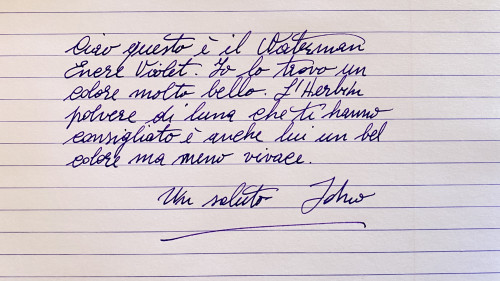 Ciao questo è il Waterman
Encre Violet. Io lo trovo un
colore molto bello. L'Herbin
polvere di luna che ti hanno
consigliato è anche lui un bel
colore ma meno vivace.
Un saluto John